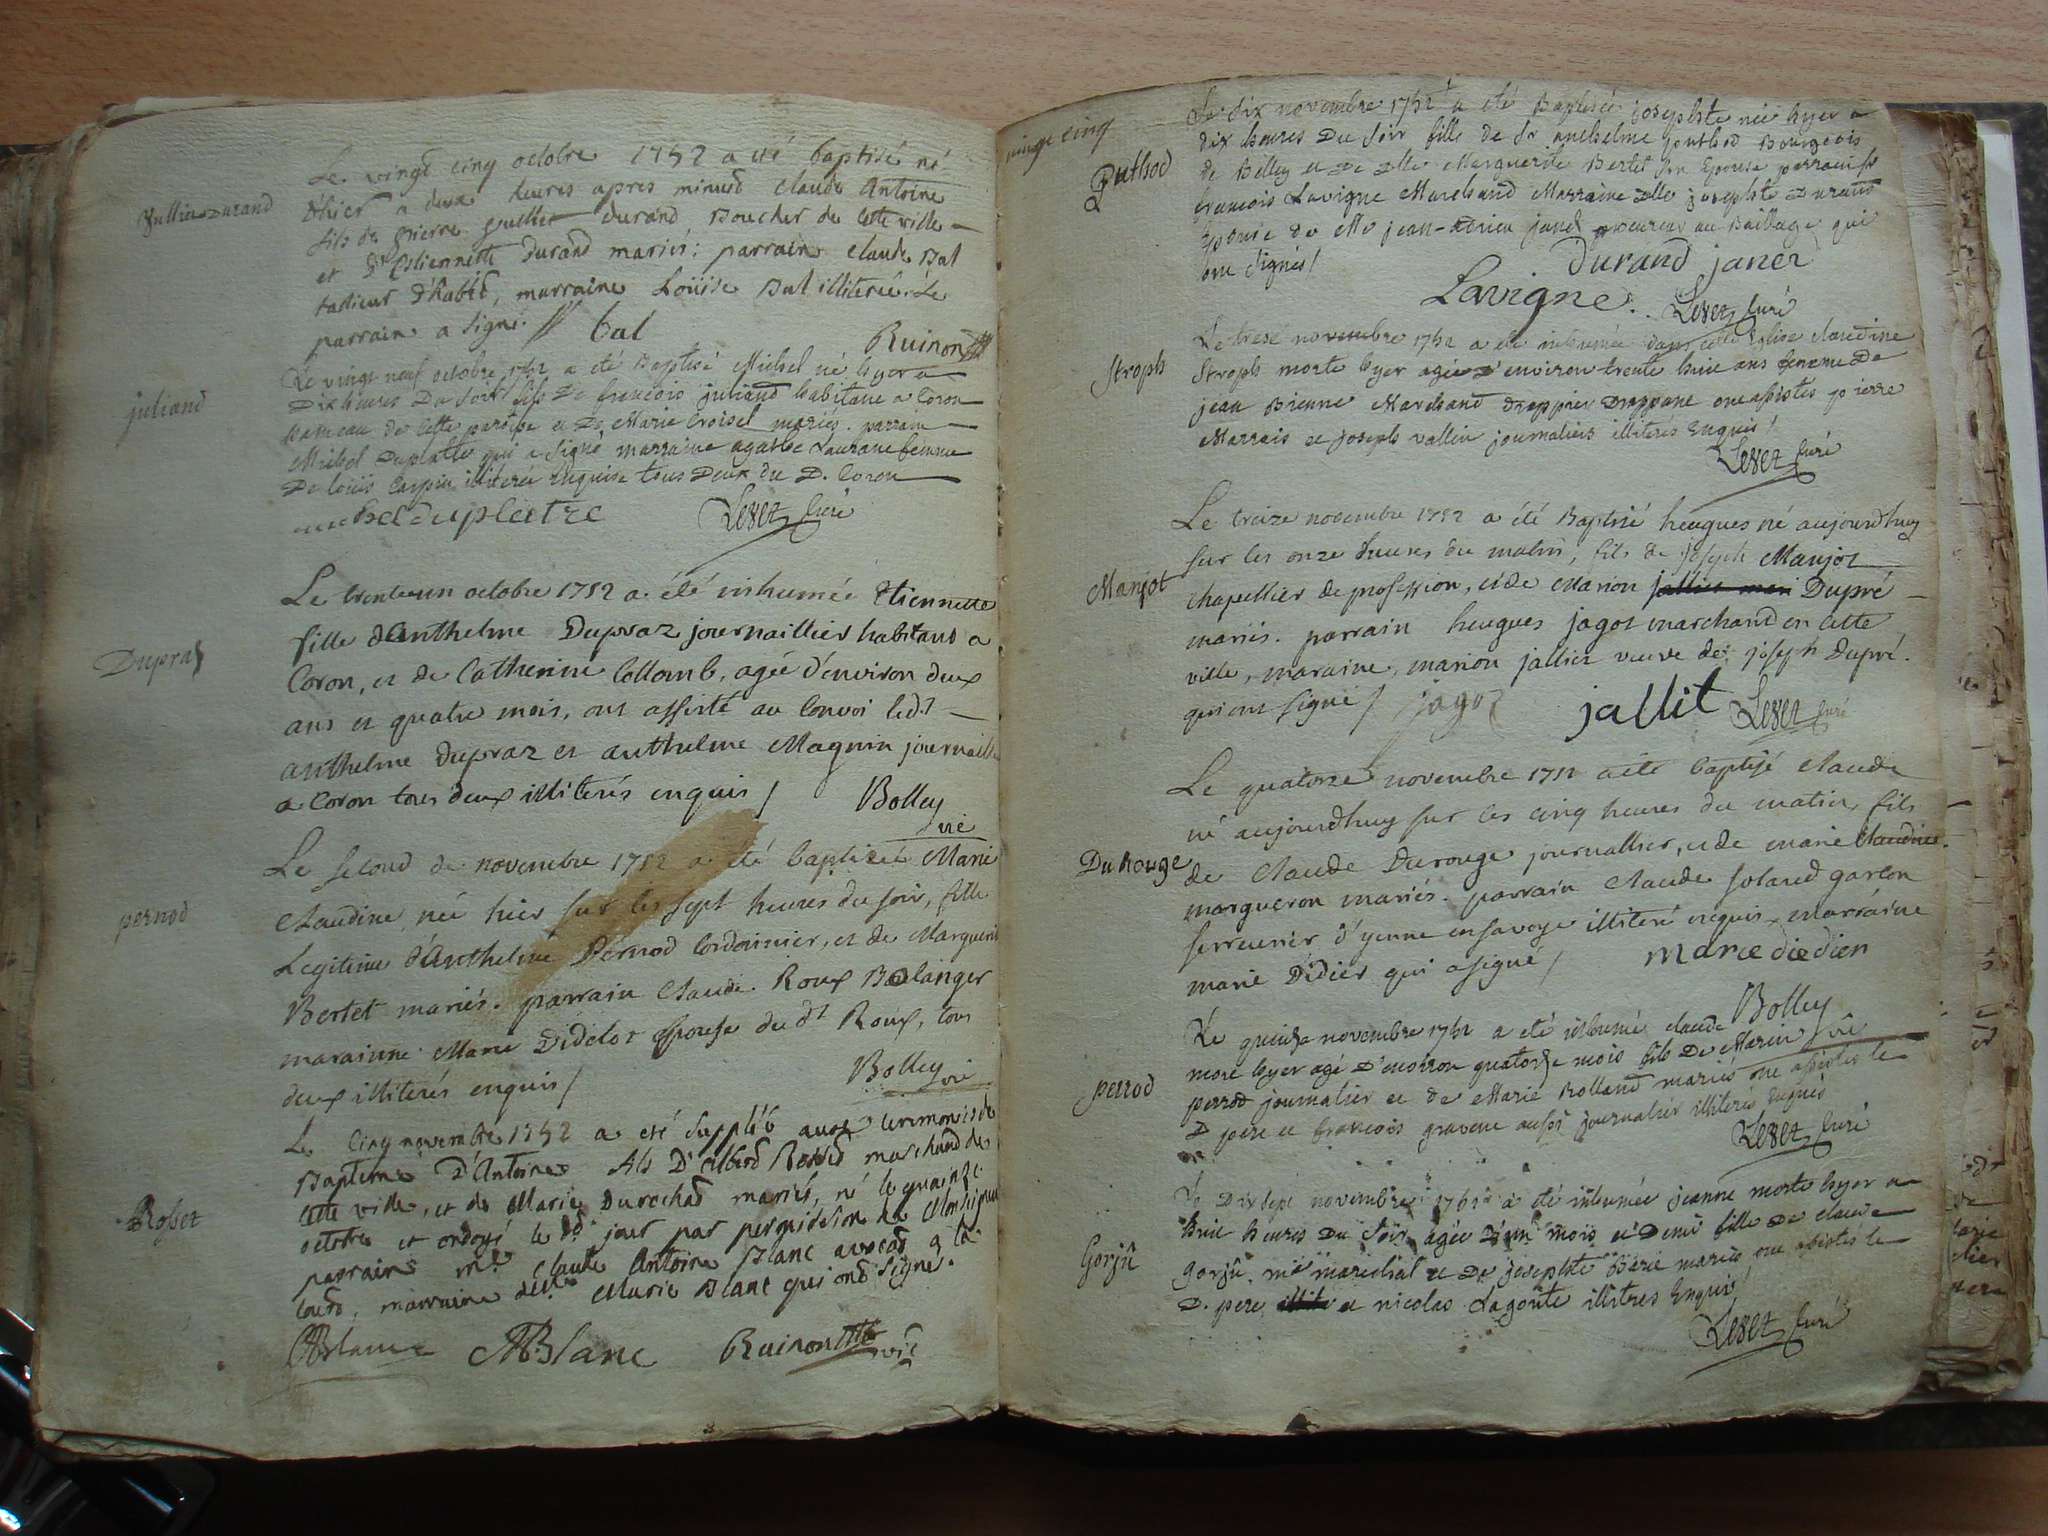 Le vingt cinq octobre 1752 a eté baptisé né
Jullin Durand
d'hier a deux heures apres minuit Claude Antoine
fils de pierre Durand Boucher de cette ville
et d' Estiennette Durand mariés: parrain Claude Bal
tailleur d'habit, marraine Loüise Bal illiterée. Le
parrain a signé. // bal
Ruinon
Le vingt neuf octobre 1752 a été Baptisé Michel né hyer a
juliand
Dix heures Du soir fils De francois juliand habitant a Coron
hameau de cette paroisse et De Marie Croisel mariés. parrain
Michel Duplatre qui a signé marraine agathe Laurane femme
De loüis Carpin illiterée Enquise tous Deux du D. Coron
michel duplatre
Levet Curé
Le trente un octobre 1752 a été inhumée Etiennette
fille d'Anthelme Dupraz journaillier habitant a
Dupras
Coron, et de Catherine Collomb, agée d'environ deux
ans et quatre mois, ont assisté au Convoi led.t
anthelme dupraz et anthelme Magnin journaill
a Coron tous deux illiterés enquis /
Bolley
vic
Le second de novembre 1752 a été baptisée Marie
pernod
Claudine, née hier sur les sept heures du soir, fille
Legitime d'Anthelme Pernod Cordonnier, et de Marguerite
Bertet mariés. parrain Claude Roux Bolanger
marainne Marie Didelot epouse du dt Roux, tous
deux illiterés enquis /
Bolley vic
Le Cinq novembre 1752 a eté suppléé aux ceremonies de
Baptême D'Antoine fils D' Rosset marchand de
Rosset
cette ville, et de Marie Durochat mariés, né le quainze
octobre et ondoyé le dt jour par permission de Monsigneur
parrain mr. Claude Antoine Blanc avocat a la
cour, marraine dlle Marie Blanc qui ont signé.
Blanc MBlanc Ruinon vic
vingt cinq
Le dix novembre 1752 a eté Baptisée josephte née hyer a
dix heures Du soir fille de Sr anthelme puthod Bourgeois
Puthod
de Belley et de Dlle Marguerite Bertet son Epouse parrain Sr
francois Lavigne Marchand Marraine Dlle josephte Durand
Epouse de Me jean-adrien janet procureur au Baillage qui
ont signés /
Durand janet
Lavigne. Levet Curé
Le treisé novembre 1752 a été inhumée dans cette Eglise claudine
Stroph
Stroph morte hyer agée d'environ trente huit ans femme De
jean Bienne Marchand Drappier Drappant ont assistés pierre
Marrais et joseph vallin journaliers illiteres Enquis /
Levet Curé
Le treize novembre 1752 a été Baptisé heugues né aujourdhuy
sur les onze heures du matin, fils de joseph Manjot
Manjot
chapellier de profession, et de Marion Dupré
mariés. parrain heugues jagot marchand en cette
ville, maraine, marion jallier veuve de joseph Dupré.
qui ont signé / jagot jallit Levet Curé
Le quatorze novembre 1752 a eté baptisé Claude
né aujourdhuy sur les cinq heures du matin, fils
Du Rouge
de Claude Durouge journallier, et de marie Claudine
margueron mariés. parrain Claude garcon
serrurier d'yenne en savoye illiteré enquis, marraine
marie Didier qui a signé /
marie diedien
Bolley
vic
Le quinze novembre 1752 a eté inhumé claude
perrod
mort hyer agé D'environ quatorze mois fils De Marin
perrod journalier et de Marie Rolland mariés ont assistés le
D. pere et francois gravene aussi journalier illiterés Enquis
Levet Curé
Le Dixsept novembre 1752 a été inhumée jeanne morte hyer a
huit heures Du soir agée D'un mois et Demi fille De claude
Gorjû
Gorjû me marechal et De josephte mariés ont assistés le
D. pere et nicolas Lagoute illitres Enquis /
Levet Curé